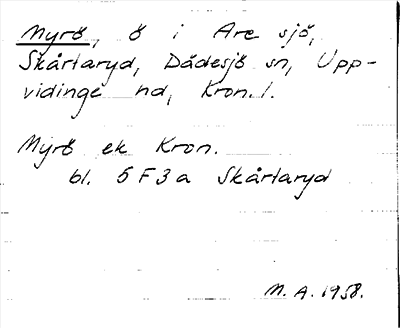 Myrö, ö i Are sjö,
Skårtaryd, Dädesjö sn, Upp-
vidinge hd, Kron. l.
Myrö ek Kron.
bl. 5 F 3 a Skårtaryd
M. A. 1958.